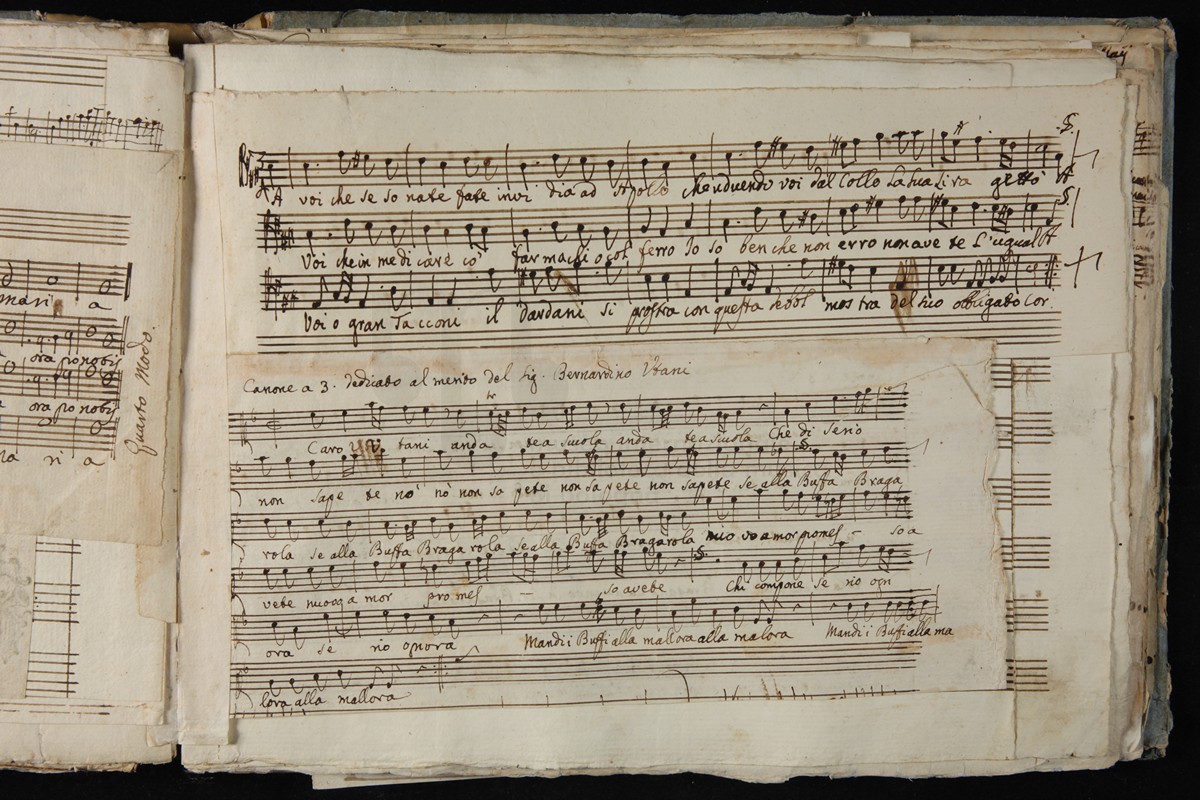 mari a
ora pro nobis
ora pro nobis
ri a
Quarto Modo.
A voi che se so nate fate invi dia ad Apollo che vedendo voi dal Collo la sua Lira gettò A
Voi che in medicare cò farmachi o col ferro Io sò ben che non erro non ave te L'ugual A
Voi o gran Tacconi il Dardani si prostra con questa debbol mostra del suo obbligato Cor
Canone a 3. dedicato al merito del Sig. Bernardino Vtani
Caro V tani anda te a scuola anda te a scuola Che di serio
non sape te nò nò non sa pete non sa pete non sapete se alla Buffa Braga
rola se alla Buffa Braga rola se alla Buffa Bragarola so a
vete mor pro mes so avete Chi compone se rio ogn
ora se rio ognora Mandi i Buffi alla mallora alla malora Mandi i Buffi alla ma
lora alla mallora